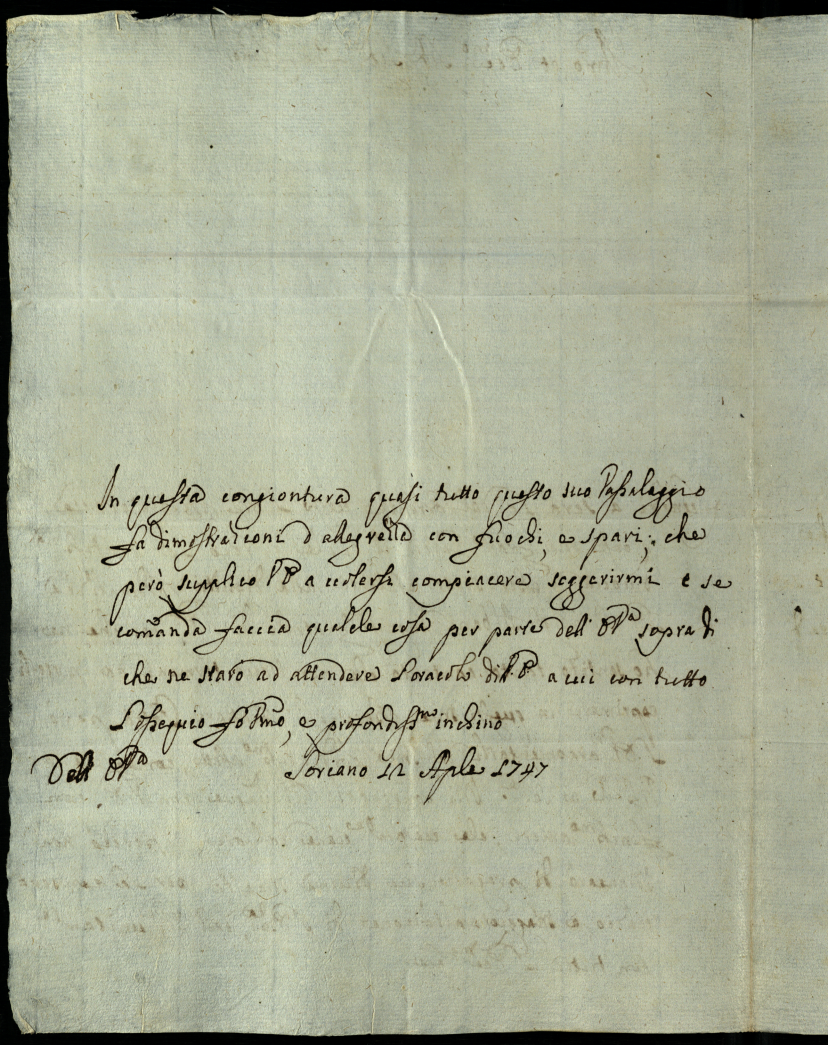 In questa congiontura quasi tutto questo suo Vassalaggio
fa dimostrazioni d allegrezza con fuochi, e spari; che
però supplico VE a volersi compiacere soggerirmi e se
comanda faccia qualche cosa per parte dell' EVa sopra di
che ne starò ad attendere l'oracolo di VE a cui con tutto
l'ossequio fo Vmo, e profondissmo inchino
Dell' EVa Soriano 12 Aple 1747